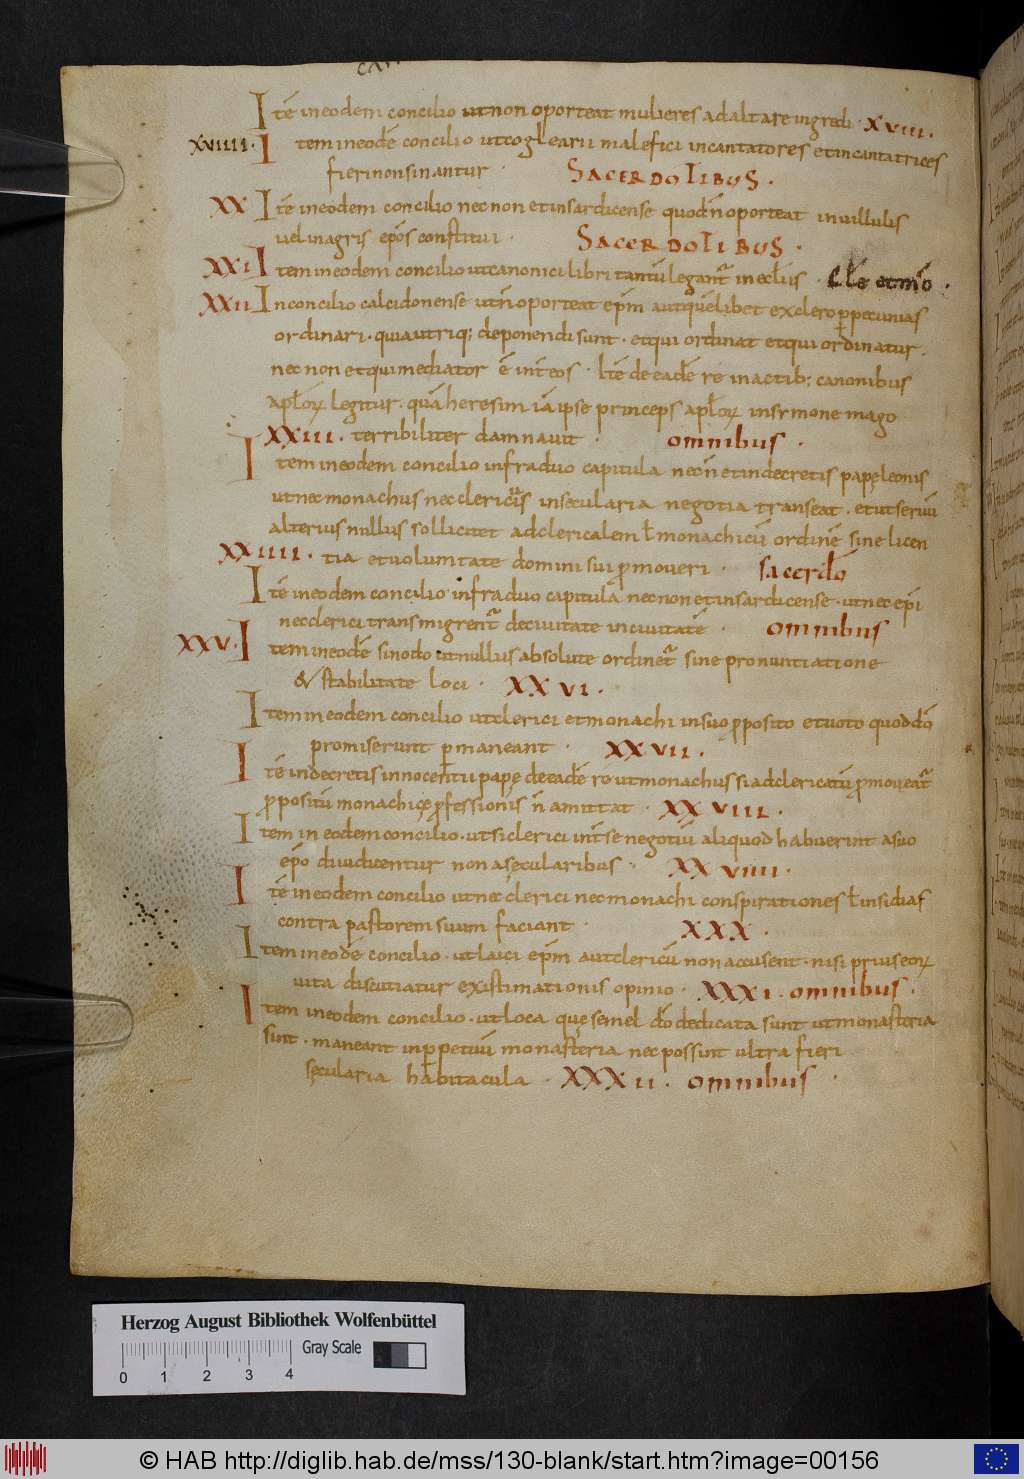 Itē in eodem concilio ut non oporteat mulieres ad altare ingredi · XVIII.
XVIIII. Item in eodē concilio ut coglearii malefici incantatores et incantatrices
fieri non sinantur · SACERDOTIBUS.
XX Itē in eodem concilio nec non et in sardicense quod n̄ oporteat in villulis
vel in agris ep̄os constitui · SACERDOTIBUS ·
XXI Item in eodem concilio ut canonici libri tantū legantr̄ in ecl̄iis · Cle et mō ·
XXII In concilio calcidonense ut n̄ oporteat ep̄m aut quēlibet ex clero p̱ pecunias
ordinari · quia utriq; deponendi sunt · et qui ordinat et qui ordinatur ·
nec non et qui mediator ē int̄ eos · Itē de eadē re in actib; canonibus
apl̄oꝝ legitur · quā heresim iā ipse princeps apl̄oꝝ in sermone mago
XXIII · terribiliter damnavit · omnibus ·
Item in eodem concilio infra duo capitula nec n̄ et in decretis papę leonis
ut nec monachus nec clericus in secularia negotia transeat · et ut servū
alterius nullus sollicitet ad clericalem ł monachicū ordinē sine licen
XXIIII · tia et voluntate domini sui ꝓmoveri · sacerdō
Itē in eodem concilio infra duo capitula nec non et in sardicense · ut nec ep̄i
nec clerici transmigrentr̄ de civitate in civitatē · omnibus
XXV · Item in eodē sinodo ut nullus absolute ordinetr̄ sine pronuntiatione
& stabilitate loci · XXVI ·
Item in eodem concilio ut clerici et monachi in suo ꝓposito et voto quod dō
promiserunt p̱maneant · XXVII ·
Itē in decretis innocentii papę de eadē re ut monachus si ad clericatū ꝓmoveatr̄
ꝓpositū monachicę ꝓfessionis n̄ amittat · XXVIII ·
Item in eodem concilio · ut si clerici int̄ se negotiū aliquod habuerint a suo
ep̄o diiudicentur non a secularibus · XXVIIII ·
Itē in eodem concilio ut nec clerici nec monachi conspirationes ł insidias
contra pastorem suum faciant · XXX ·
Item in eodē concilio · ut laici ep̄m aut clericū non accusent · nisi prius eoꝝ
vita discutiatur existimationis opinio · XXXI · omnibus ·
Item in eodem concilio · ut loca quę semel dō dedicata sunt ut monasteria
sint · maneant in p̱petuū monasteria nec possint ultra fieri
sęcularia habitacula · XXXII · omnibus ·
Herzog August Bibliothek Wolfenbüttel
Gray Scale
0 1 2 3 4
© HAB http://diglib.hab.de/mss/130-blank/start.htm?image=00156